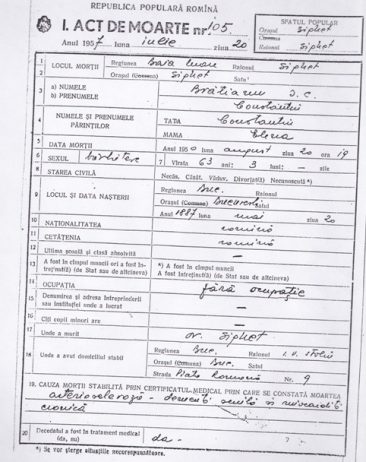 REPUBLICA POPULARĂ ROMÎNĂ
I. ACT DE MOARTE nr. 105.
SFATUL POPULAR
Anul 1957 luna iulie ziua 20
Orașul Sighet
Comuna
Raionul Sighet
1 LOCUL MORȚII Regiunea Baia Mare Raionul Sighet
2 Orașul (Comuna) Sighet Satul
3 a) NUMELE Brătianu I. C.
b) PRENUMELE Constantin
4 NUMELE ȘI PRENUMELE PĂRINȚILOR TATA Constantin
MAMA Elena
5 DATA MORȚII Anul 1950 luna august ziua 20 ora 19
6 SEXUL bărbătesc 7 Vîrsta 63 ani; 3 luni; — zile
8 STAREA CIVILĂ Necăs. Căsăt. Văduv, Divorțat(ă) Necunoscută *)
9 LOCUL ȘI DATA NAȘTERII Regiunea Buc. Raionul
Orașul (Comuna) București Satul
Anul 1887 luna mai ziua 20
10 NAȚIONALITATEA romînă
11 CETĂȚENIA romînă
12 Ultima școală și clasă absolvită —
13 A fost în cîmpul muncii ori a fost întreținut(ă) (de Stat sau de altcineva) *) A fost în cîmpul muncii
A fost întreținut(ă) (de Stat sau de altcineva)
14 OCUPAȚIA fără ocupație
15 Denumirea și adresa întreprinderii sau instituției unde a lucrat —
16 Cîți copii minori are —
17 Unde a murit or. Sighet
18 Unde a avut domiciliul stabil Regiunea Buc. Raionul I. V. Stalin
Orașul (Comuna) Buc. Satul
Strada Piața Romană Nr. 9
19. CAUZA MORȚII STABILITĂ PRIN CERTIFICATUL MEDICAL PRIN CARE SE CONSTATĂ MOARTEA
arterioscleroză - demență senilă și miocardită
cronică
20 Decedatul a fost în tratament medical (da, nu) da -
*) Se vor șterge situațiile necorespunzătoare.